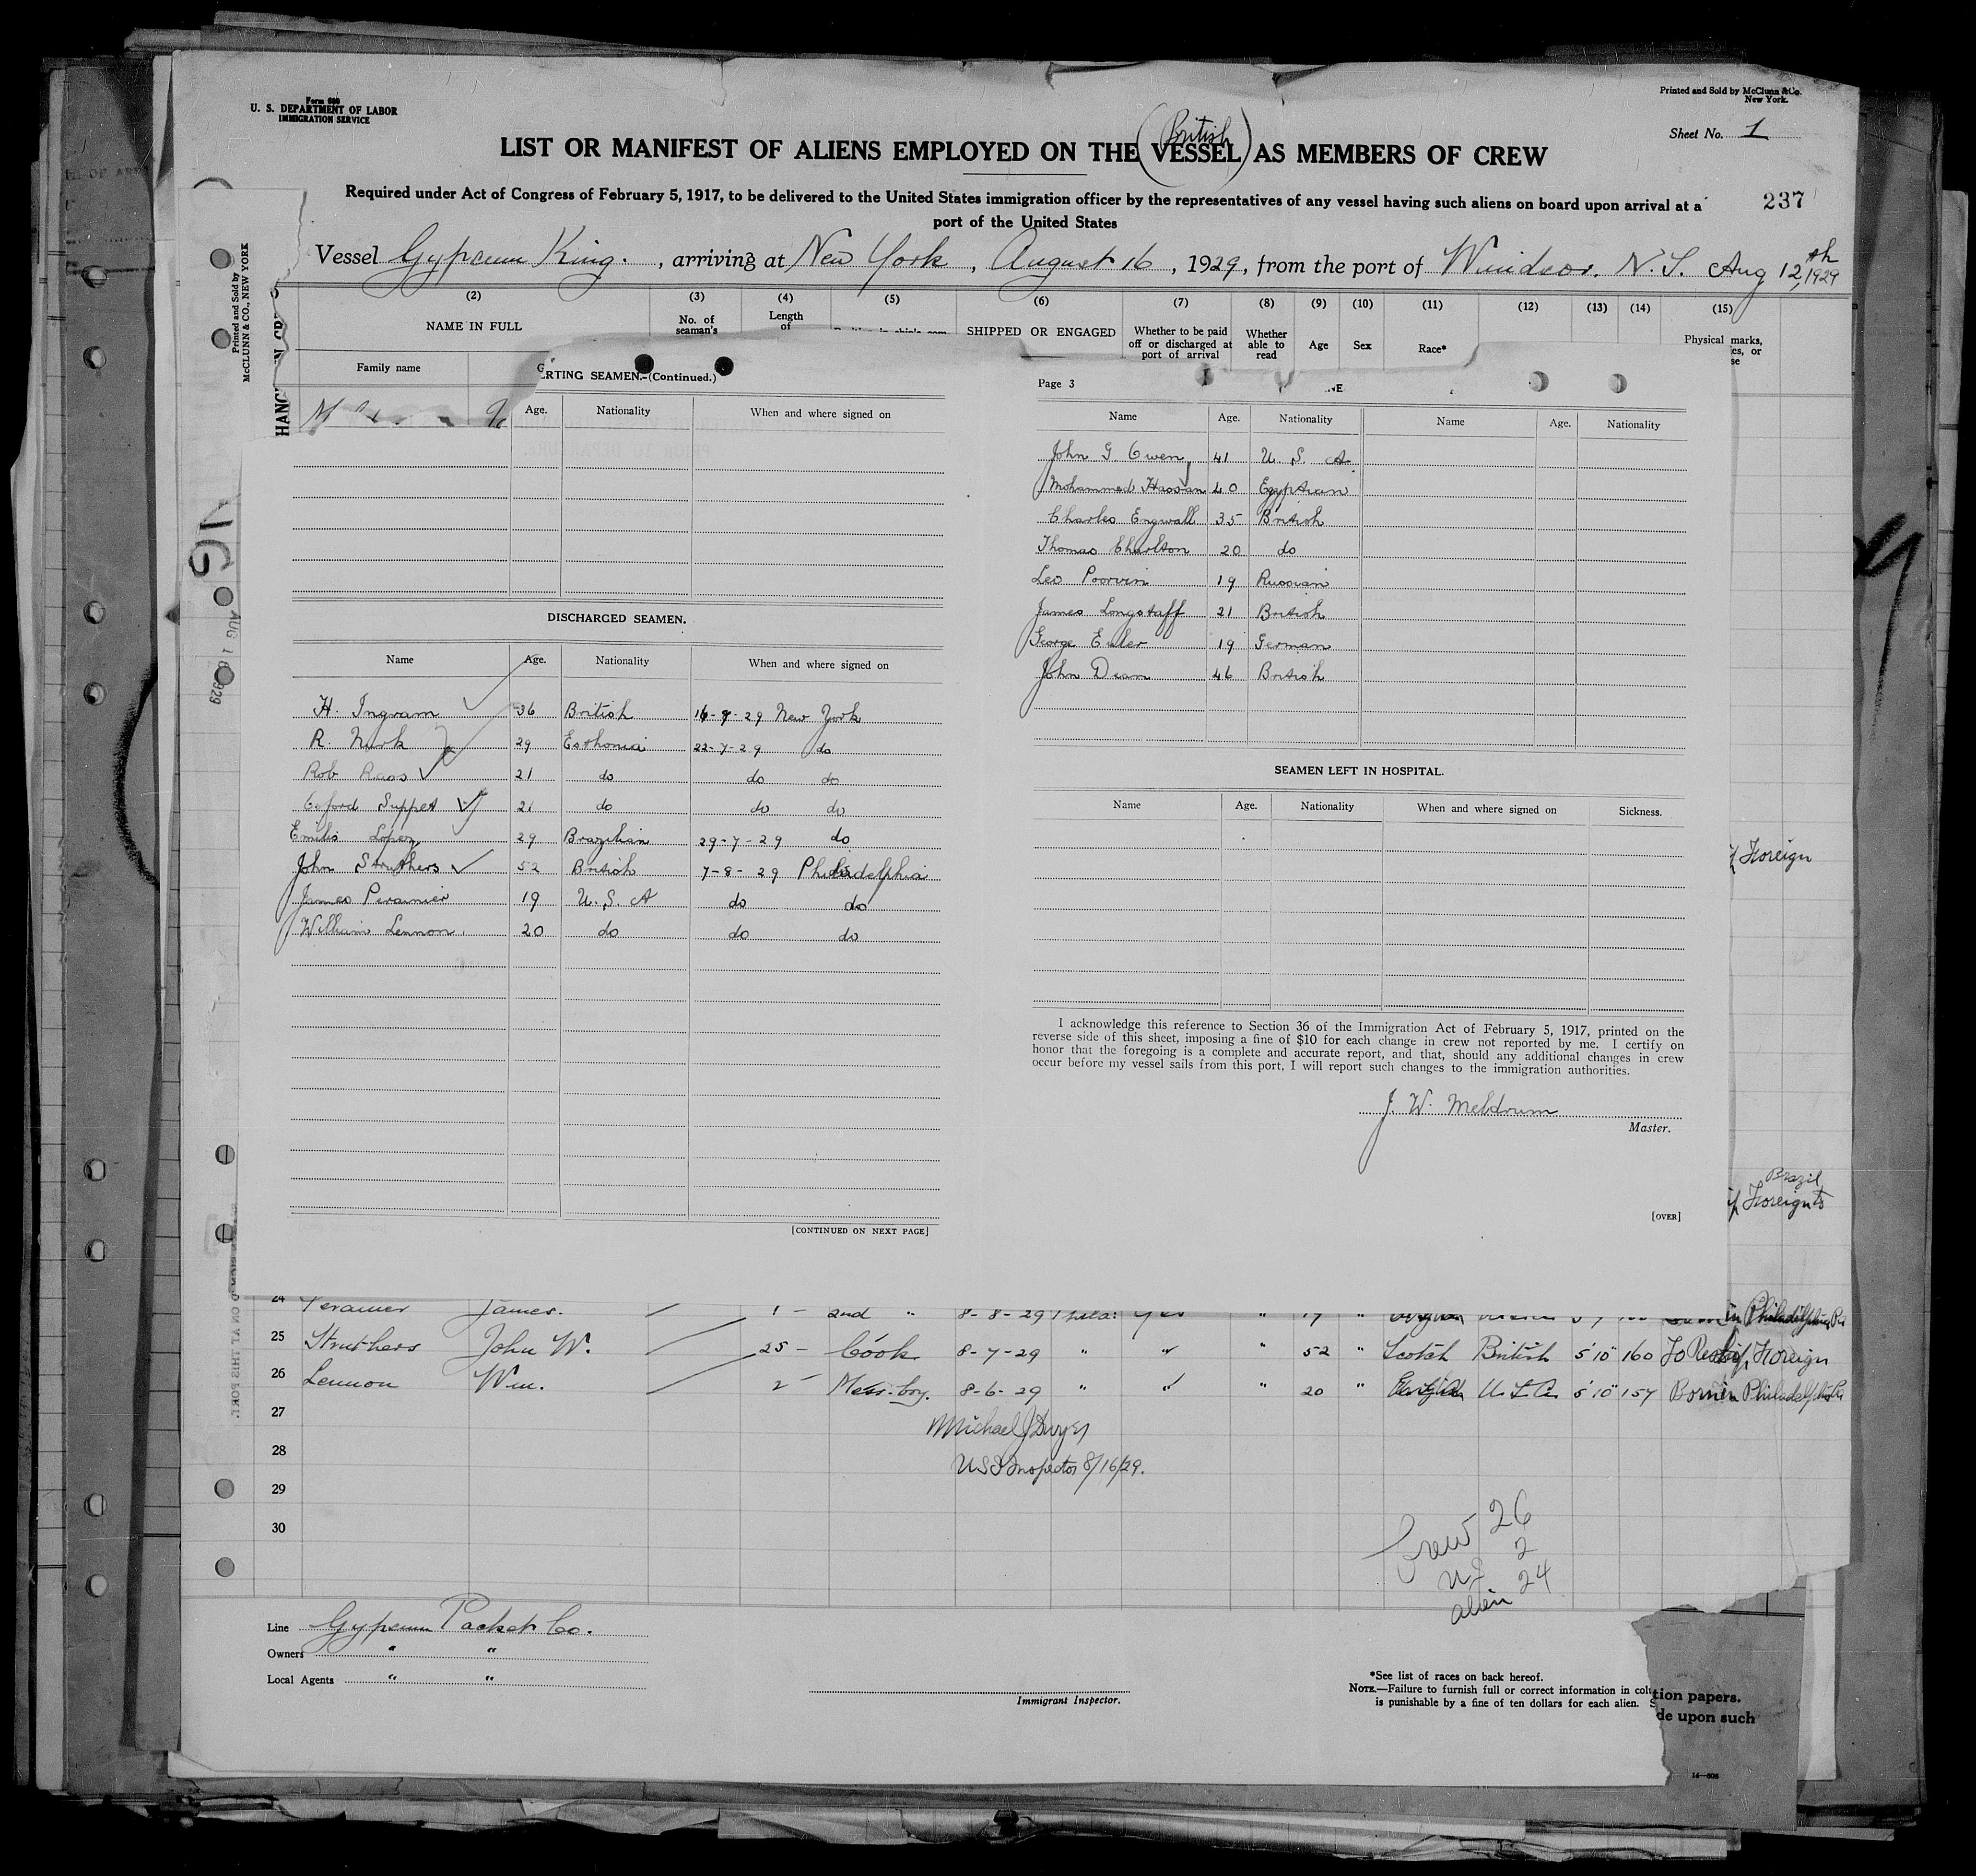 Form 680
U. S. DEPARTMENT OF LABOR
IMMIGRATION SERVICE
Printed and Sold by McClunn & Co.
New York.
Sheet No. 1
(British)
LIST OR MANIFEST OF ALIENS EMPLOYED ON THE VESSEL AS MEMBERS OF CREW
Required under Act of Congress of February 5, 1917, to be delivered to the United States immigration officer by the representatives of any vessel having such aliens on board upon arrival at a
port of the United States
237
Vessel Gypsum King., arriving at New York, August 16, 1929, from the port of Windsor. N.S. Aug 12th, 1929
Printed and Sold by
McCLUNN & CO., NEW YORK
(2) (3) (4) (5) (6) (7) (8) (9) (10) (11) (12) (13) (14) (15)
NAME IN FULL
No. of seaman's
Length of
SHIPPED OR ENGAGED
Whether to be paid off or discharged at port of arrival
Whether able to read
Age
Sex
Race*
Physical marks,
Family name
RTING SEAMEN.-(Continued.)
Age. Nationality When and where signed on
DISCHARGED SEAMEN.
Name Age. Nationality When and where signed on
H. Ingram 36 British New York
R. Nurk 29 Esthonia 22-7-29 do
Rob 21 do do do
21 do do do
Emilio Lopez 29 Brazilian 29-7-29 do
John Struthers 52 British 7-8-29 Philadelphia
James 19 U.S.A do do
William Lennon. 20 do do do
[CONTINUED ON NEXT PAGE]
Page 3
Name Age. Nationality Name Age. Nationality
John G Owen 41 U.S.A.
Mohammed Hassan 40 Egyptian
Charles Engwall 35 British
Thomas Charlton 20 do
Leo Poorvin 19 Russian
James Longstaff 21 British
George Euler 19 German
John Dean 46 British
SEAMEN LEFT IN HOSPITAL.
Name Age. Nationality When and where signed on Sickness.
I acknowledge this reference to Section 36 of the Immigration Act of February 5, 1917, printed on the
reverse side of this sheet, imposing a fine of $10 for each change in crew not reported by me. I certify on
honor that the foregoing is a complete and accurate report, and that, should any additional changes in crew
occur before my vessel sails from this port, I will report such changes to the immigration authorities.
J. W. Meldrum
Master.
[OVER]
Foreign
Brazil
Foreign
24 James. 1 - 2nd " 8-8-29 Phila: Yes " 19 " Philadelphia Pa
25 Struthers John W. 25 - Cook 8-7-29 " " " 52 " Scotch British 5'10" 160 Foreign
26 Lennon Wm. 2 - Mess-boy. 8-6-29 " " " 20 " U.S.A. 5'10" 157 Born in Philadelphia Pa
27
28
29
30
Michael J Dwyer
USI Inspector 8/16/29.
Crew 26
US 2
alien 24
Line Gypsum Packet Co.
Owners " "
Local Agents " "
Immigrant Inspector.
*See list of races on back hereof.
NOTE.—Failure to furnish full or correct information in col
is punishable by a fine of ten dollars for each alien.
tion papers.
de upon such